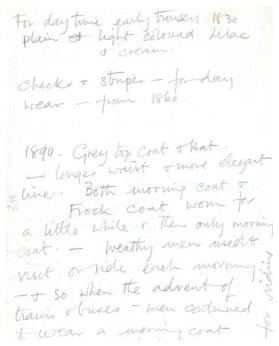 For day time early trousers 1830
plain & light coloured Lilac
& cream.
checks & stripes – for day
wear – from 1860.
1890. Grey top coat & Hat.
– longer waist & more elegant
line. Both morning coat &
Frock coat worn for
a little while & then only morning
coat. – weathy men used to
visit or ride each morning
– & so when the advent of
trains & buses – men continued
to wear a morning coat
for riding